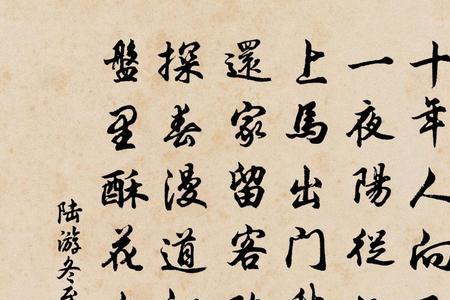 十年人向
一夜陽從
上馬出門
還家留客
探春漫道
盤里酥花
陆游冬至